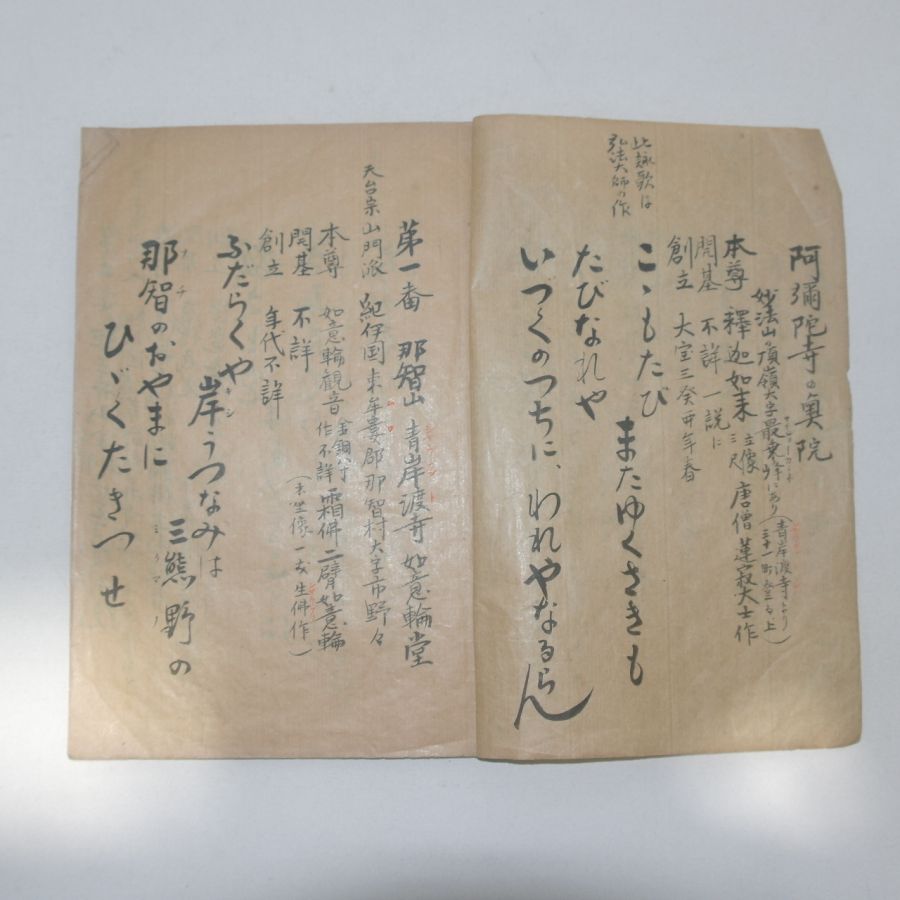 阿彌陀寺の奥院
妙法山の頂嶺大字最東峰にあり(青岸渡寺より三十一町登る上)
本尊 釋迦如来 立像三尺 唐僧蓮寂大士作
開基 不詳 一説に
創立 大宝三癸卯年春
此詠歌は
弘法大師の作
こゝもたび またゆくさきも
たびなれや
いづくのつちに、われやなるらん
第一番 那智山 青岸渡寺 如意輪堂
天台宗山門派 紀伊国東牟婁郡那智村大字市野々
本尊 如意輪観音 金銅 作不詳 霜佛二臂如意輪
(木坐像 生佛作)
開基 不詳
創立 年代不詳
ふだらくや 岸うつなみは
三熊野の
那智のおやまに
ひゞくたきつせ